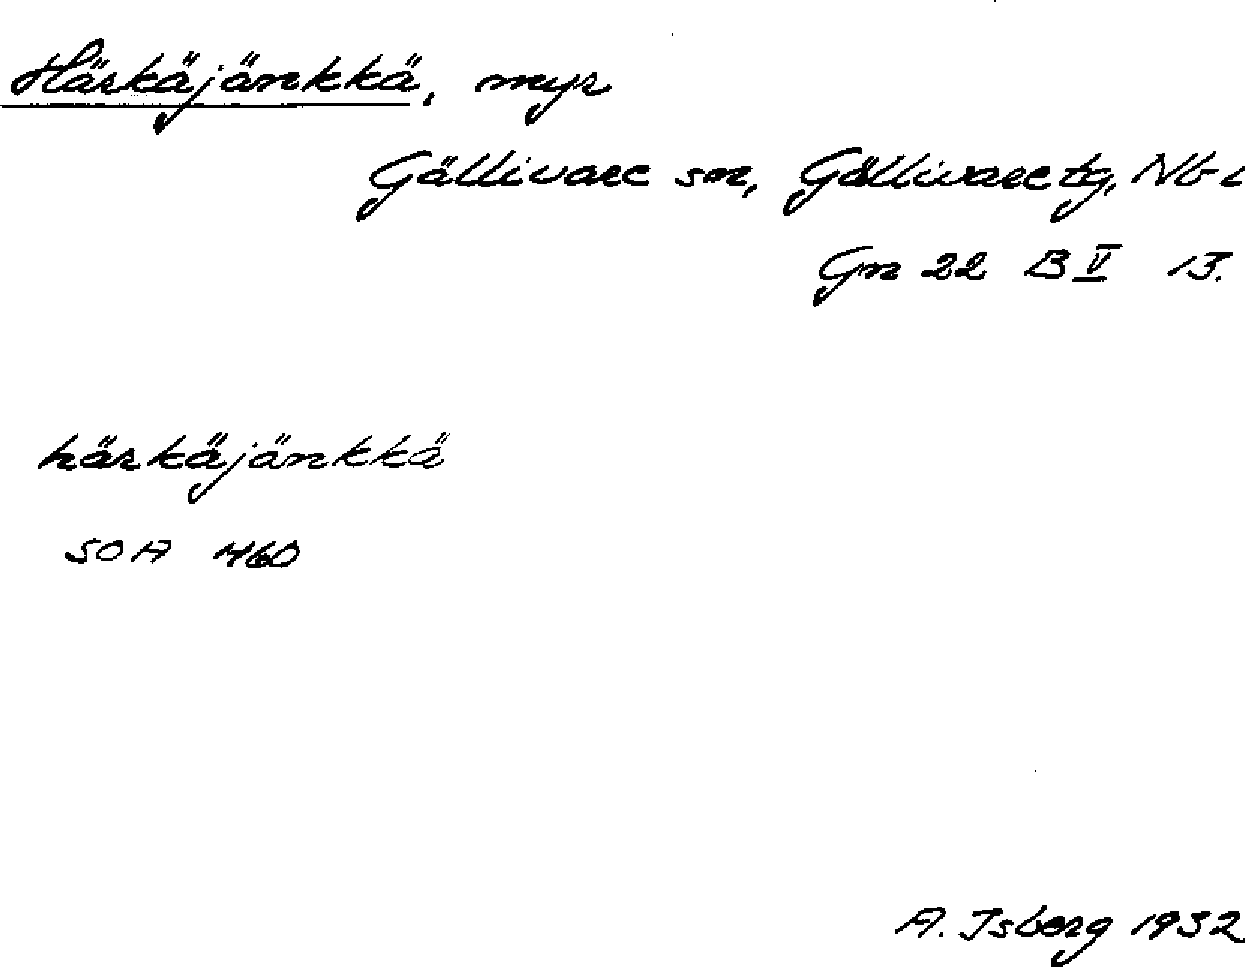 Härkäjänkkä, myr
Gällivare sn, Gällivare tg, Nb l
Gn 22 B V 13.
härkäjänkkä
SOA 460
A. Isberg 1932